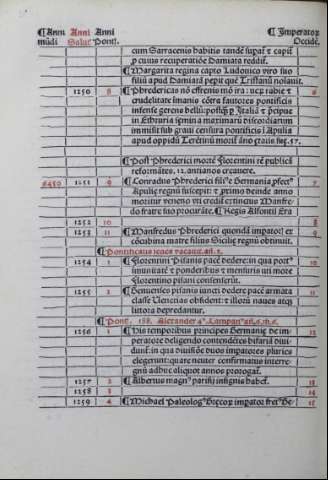 ¶Anni Anni Anni ¶Imperator
mūdi Salut' Pont'. Occidē.
cum Sarracenis habitis tandē supat' & capit'
p cuius recuperatiōe Damiata reddit'.
¶Margarita regina capto Ludouico viro suo
filiū apud Damiatā pepit quē Tristanū
1250 8 ¶Phredericus nō effrenis mō ira: uerū rabie & 6
crudelitate cōtra fautores pontificis
infensę gerens bellū: postq̄ p Italiā & p̄cipue
in semina maximarū discordiarum
immisit sub graui censura pontificis ī Apulia
apud oppidū moritur āno ętatis suę. 57.
¶Post Phrederici mortē Florentini rē publicā
reformātes. 12. antianos creauere.
6450 1251 9 ¶Conradus Phrederici fili' e Germania pfect' 7
Apulię regnū suscepit: & primo deinde anno
moritur veneno vti credit' extinctus Manfre-
do fratre suo procurāte. ¶Regis Alfonsi Era
1252 10 8
1253 11 ¶Manfredus Phrederici quondā impator' ex 9
cōcubina matre filius Sicilię regnū obtinuit.
¶Pontificatus sedes vacauit. añ. 2.
1254 1 ¶Florentini Pisanis pacē dedere: in qua port' 10
immunitatē & ponderibus & mensuris uti more
Florentino pisani consenserūt.
1255 2 ¶Genuenses pisanis iuncti dedere pacē armata 11
classe Venetias obsident: & illorū naues atq̄
littora depredantur.
¶Pont'. 188. Alexander 4'. Campan' añ. 6. m̄. 6.
1256 1 ¶His temporibus principes Germanię de im- 12
peratore deligendo contendētes bifariā diui-
dunt'. in qua diuisiōe duos imperatores pluries
elegerunt: quare neuter confirmatus interre-
gnū adhuc aliquot annos prorogat'.
1257 2 ¶Albertus magn' parisijs insignis habet'. 13
1258 3 14
1259 4 ¶Michael Paleolog' Gręcor' impator fret' Ge- 15